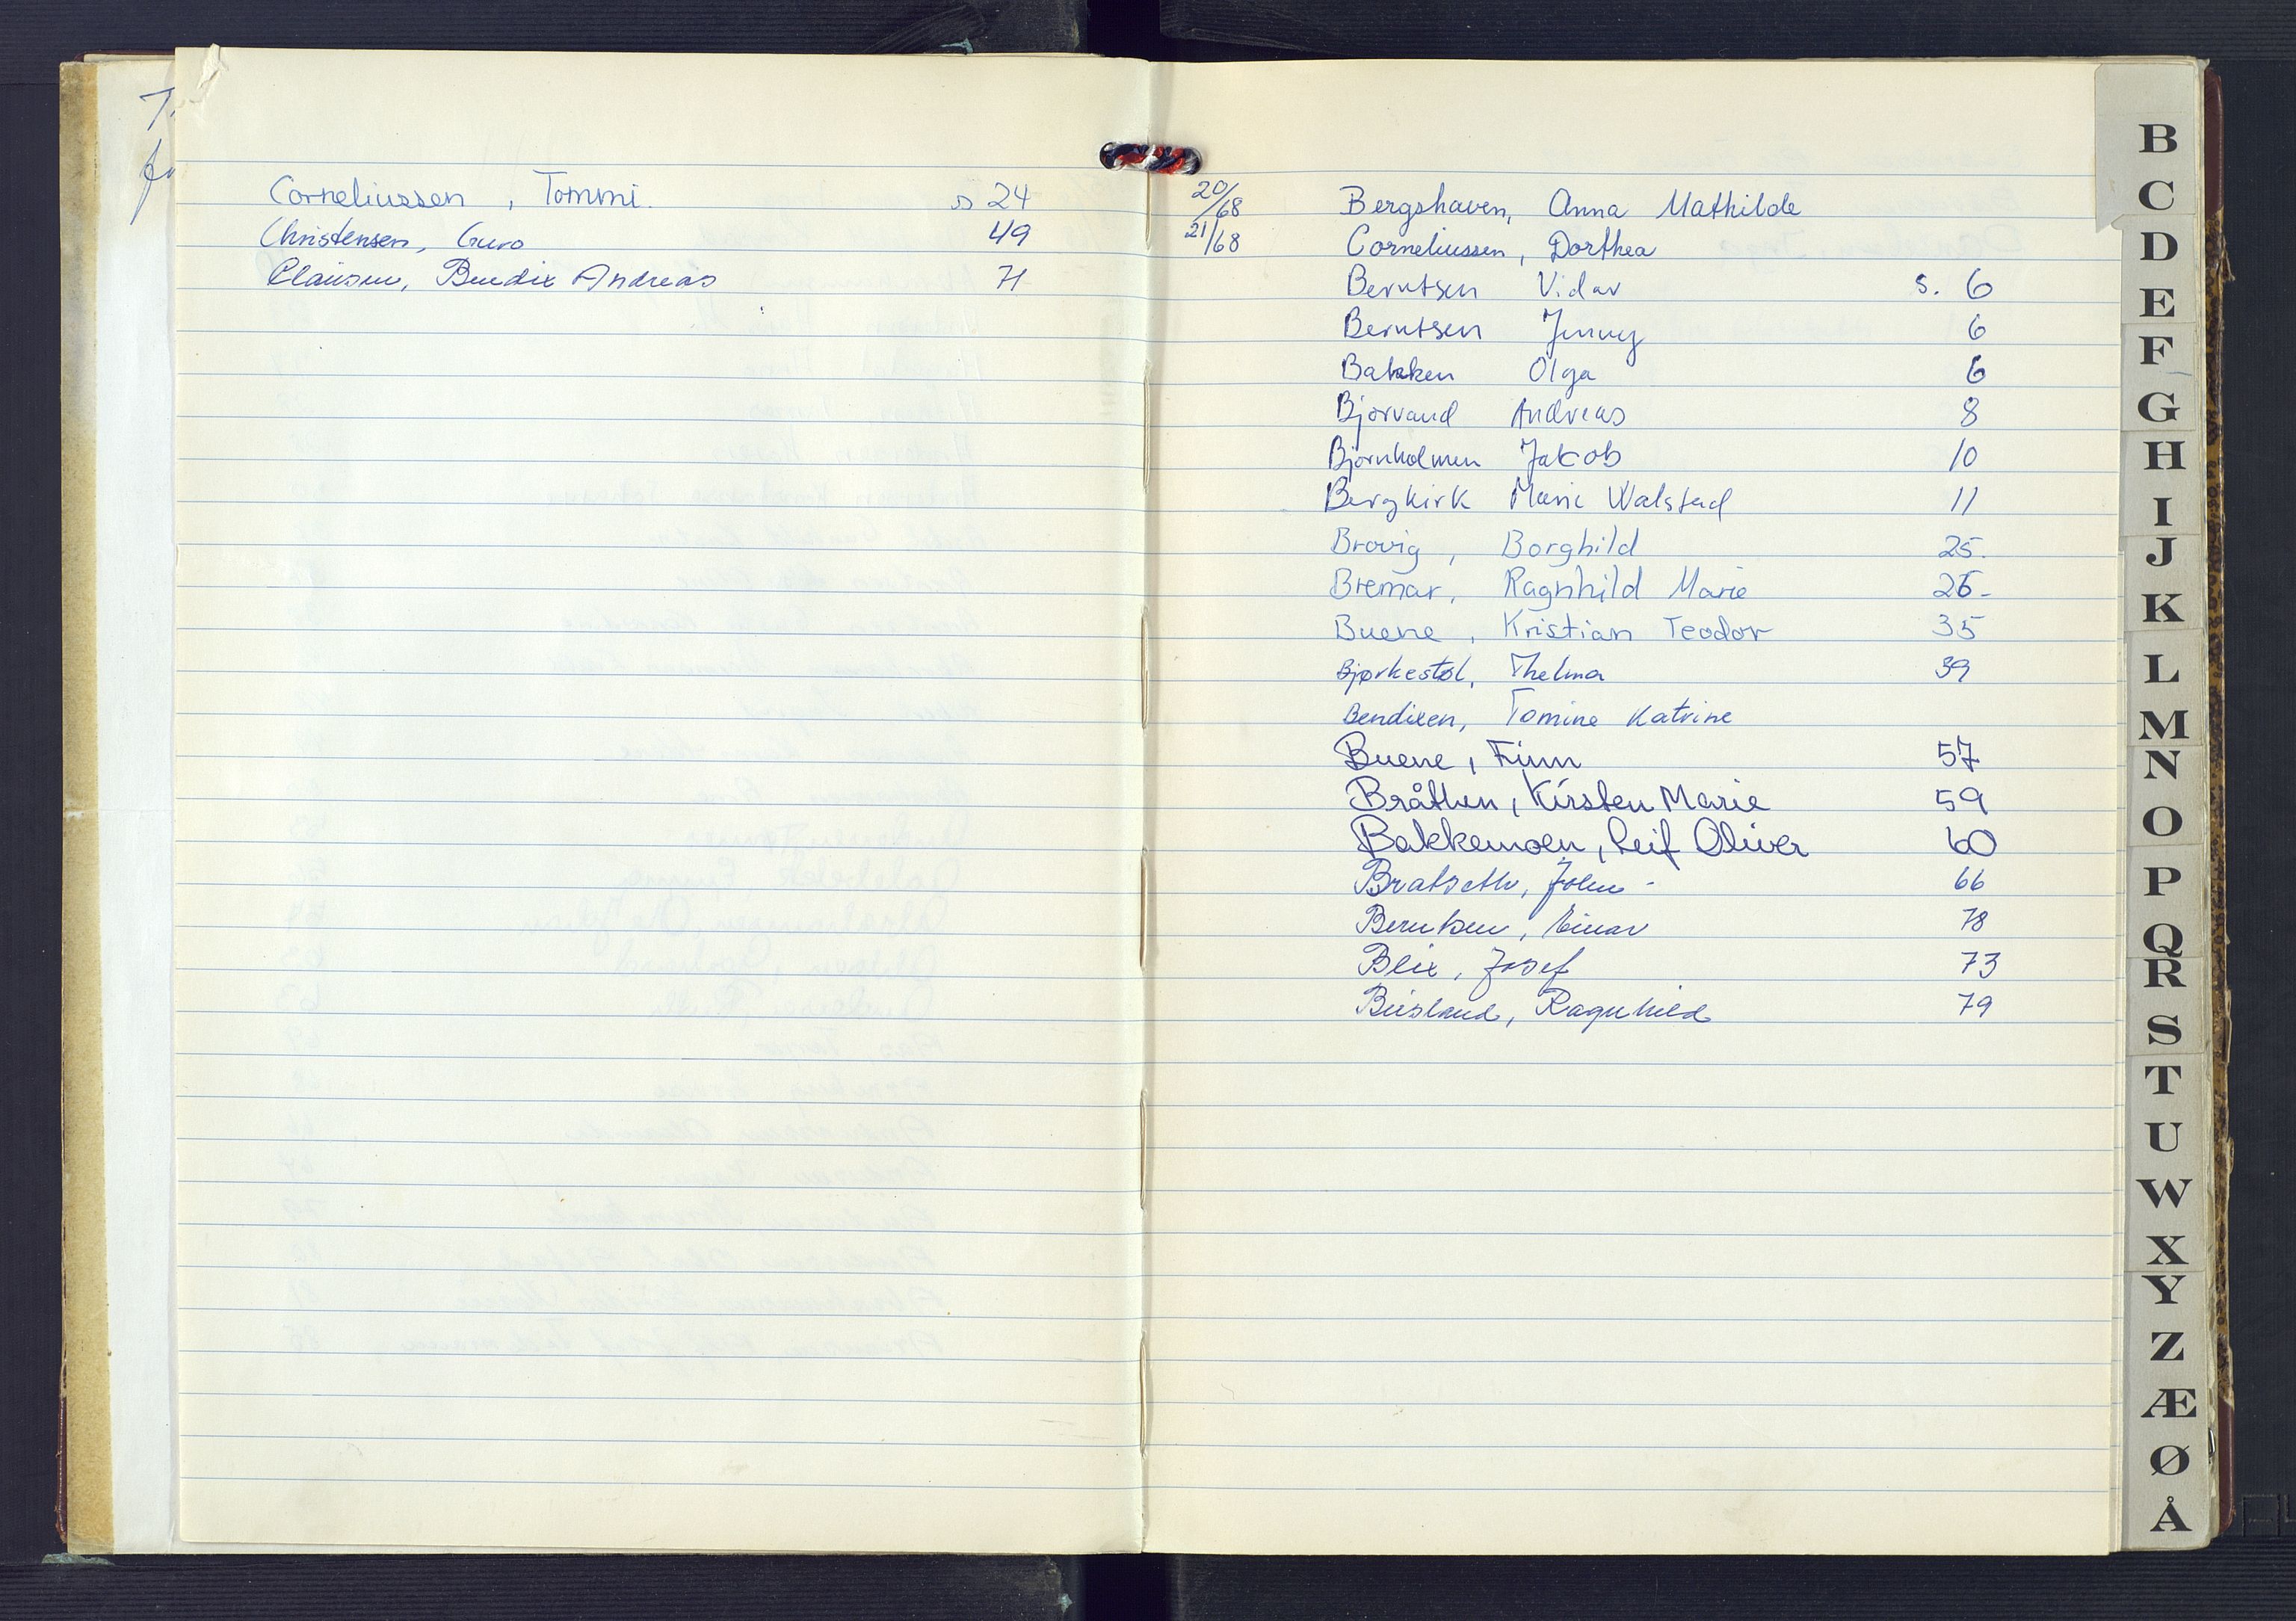 Corneliussen, Tommi. s 24
Christensen, Guro 49
Clausen, Bendix Andreas 71
20/68 Bergshaven, Anna Mathilde
21/68 Corneliussen, Dorthea
Berntsen Vidar s. 6
Berntsen Jenny 6
Bakken Olga 6
Bjorvand Andreas 8
Bjornholmen Jakob 10
Bergkirk Marie Walstad 11
Brovig, Borghild 25.
Bremar, Ragnhild Marie 26-
Buene, Kristian Teodor 35
Bjørkestøl, Thelma 39
Bendixen, Tomine Katrine
Buene, Finn 57
Bråthen, Kirsten Marie 59
Bakkemoen, Leif Oliver 60
Bratseth, John - 66
Berntsen, Einar 78
Blix, Josef 73
Birsland, Ragnhild 79
B
C
D
E
F
G
H
I
J
K
L
M
N
O
P
Q
R
S
T
U
W
X
Y
Z
Æ
Ø
Å